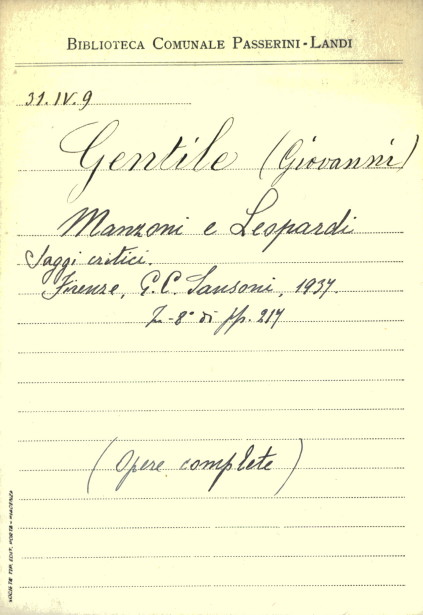 BIBLIOTECA COMUNALE PASSERINI-LANDI
31.IV.9
Gentile (Giovanni)
Manzoni e Leopardi
Saggi critici.
Firenze, G.C. Sansoni, 1937.
In-8° di pp. 217
(Opere complete)